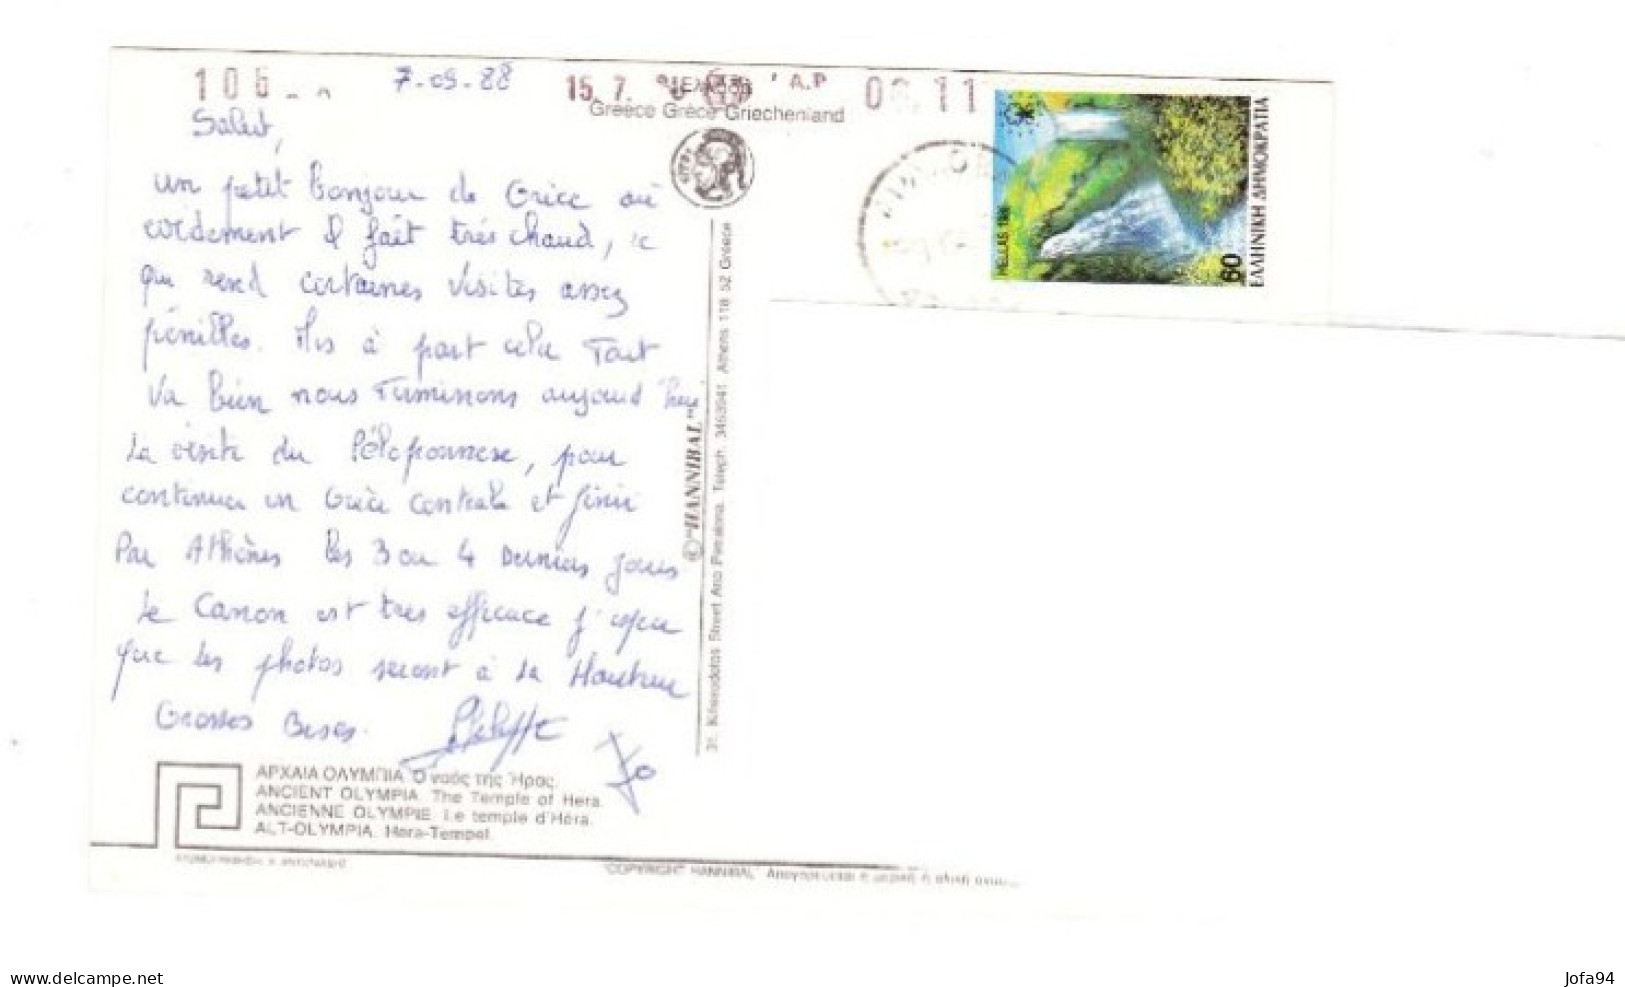 7-09-88
106
15.7.
A.P
11
Greece Grèce Griechenland
Salut,
un petit bonjour de Grèce où
il fait très chaud, ce
qui rend certaines visites assez
pénibles. Mis à part cela Tout
va bien nous Terminons aujourd'hui
la visite du Péloponnese, pour
continuer en Grèce centrale et finir
Par Athènes les 3 ou 4 Derniers jours
Le Canon est très efficace j'espère
que les photos seront à la Hauteur
Grosses Bises. Philippe
Jo
HELLAS 1988
60
ΕΛΛΗΝΙΚΗ ΔΗΜΟΚΡΑΤΙΑ
© "HANNIBAL"
31, Kheirodotos Street Ano Petralona, Teleph. 3463941 Athens 118 52 Greece
ΑΡΧΑΙΑ ΟΛΥΜΠΙΑ. Ὁ ναός τῆς Ἥρας.
ANCIENT OLYMPIA. The Temple of Hera.
ANCIENNE OLYMPIE. Le temple d'Héra.
ALT-OLYMPIA. Hera-Tempel.
"COPYRIGHT HANNIBAL" Απαγορεύεται ἡ μερική ἡ ολική
www.delcampe.net
Jofa94